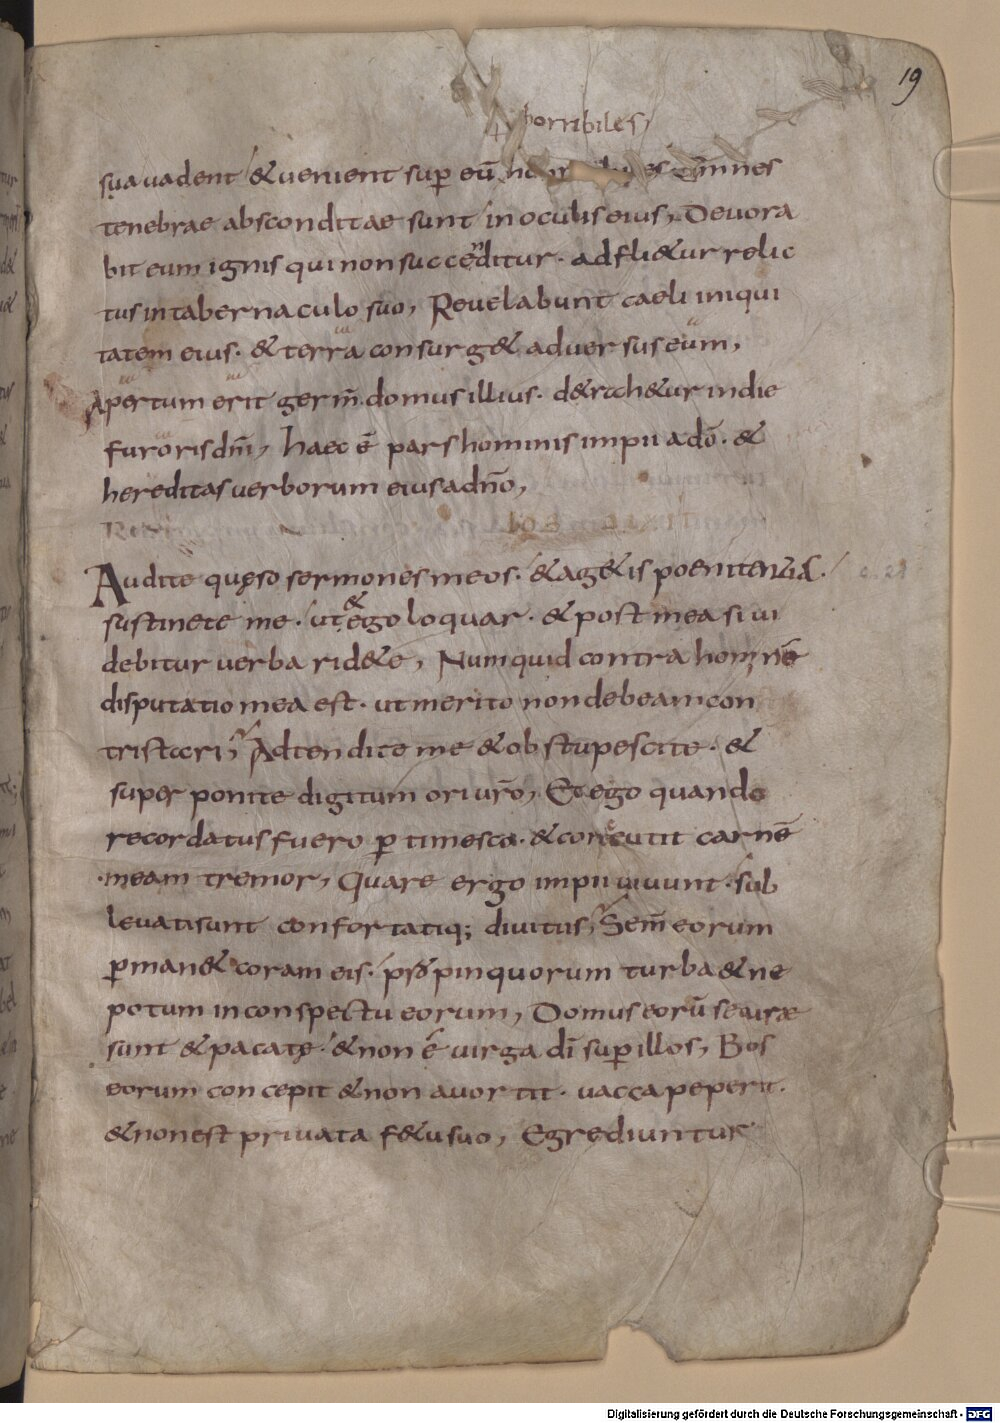 19
horribiles,
sua vadent & venient sup eū omnes
tenebrae absconditae sunt in oculis eius, Devora
bit eum ignis qui non succenditur. adflig&ur relic
tus in tabernaculo suo, Revelabunt caeli iniqui
tatem eius. & terra consurg& adversus eum,
Apertum erit germ̄ domus illius. d&rah&ur in die
furoris dn̄i, Haec ē pars hominis impii a dō. &
hereditas verborum eius a dn̄o,
Audite quęso sermones meos. & ag&is poenitentiā.
sustinete me. ut & ego loquar. & post mea si vi
debitur verba rid&e, Numquid contra hominē
disputatio mea est. ut merito non debeam con
tristari, Adtendite me & obstupescite. &
super ponite digitum ori vr̄o, Et ego quando
recordatus fuero ptimesco. & concutit carnē
meam tremor, Quare ergo impii vivunt. sub
levati sunt confortatiq; divitiis, Sem̄ eorum
pman& coram eis. ppinquorum turba & ne
potum in conspectu eorum, Domus eorū securae
sunt & pacatę. & non ē virga dī sup illos, Bos
eorum concepit & non avortit. vacca peperit.
& non est privata f&u suo, Egrediuntur
c. 21
Digitalisierung gefördert durch die Deutsche Forschungsgemeinschaft - DFG